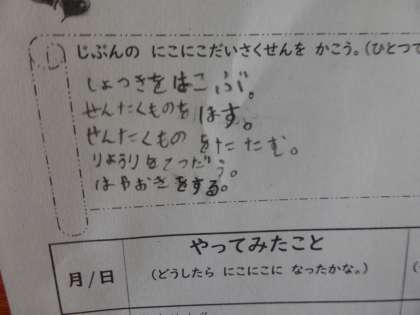 じぶんの にこにこだいさくせんを かこう。(ひとつで
しょっきをはこぶ。
せんたくものをほす。
せんたくものをたたむ。
りょうりをてつだう。
はやおきをする。
やってみたこと
月/日
(どうしたら にこにこに なったかな。)